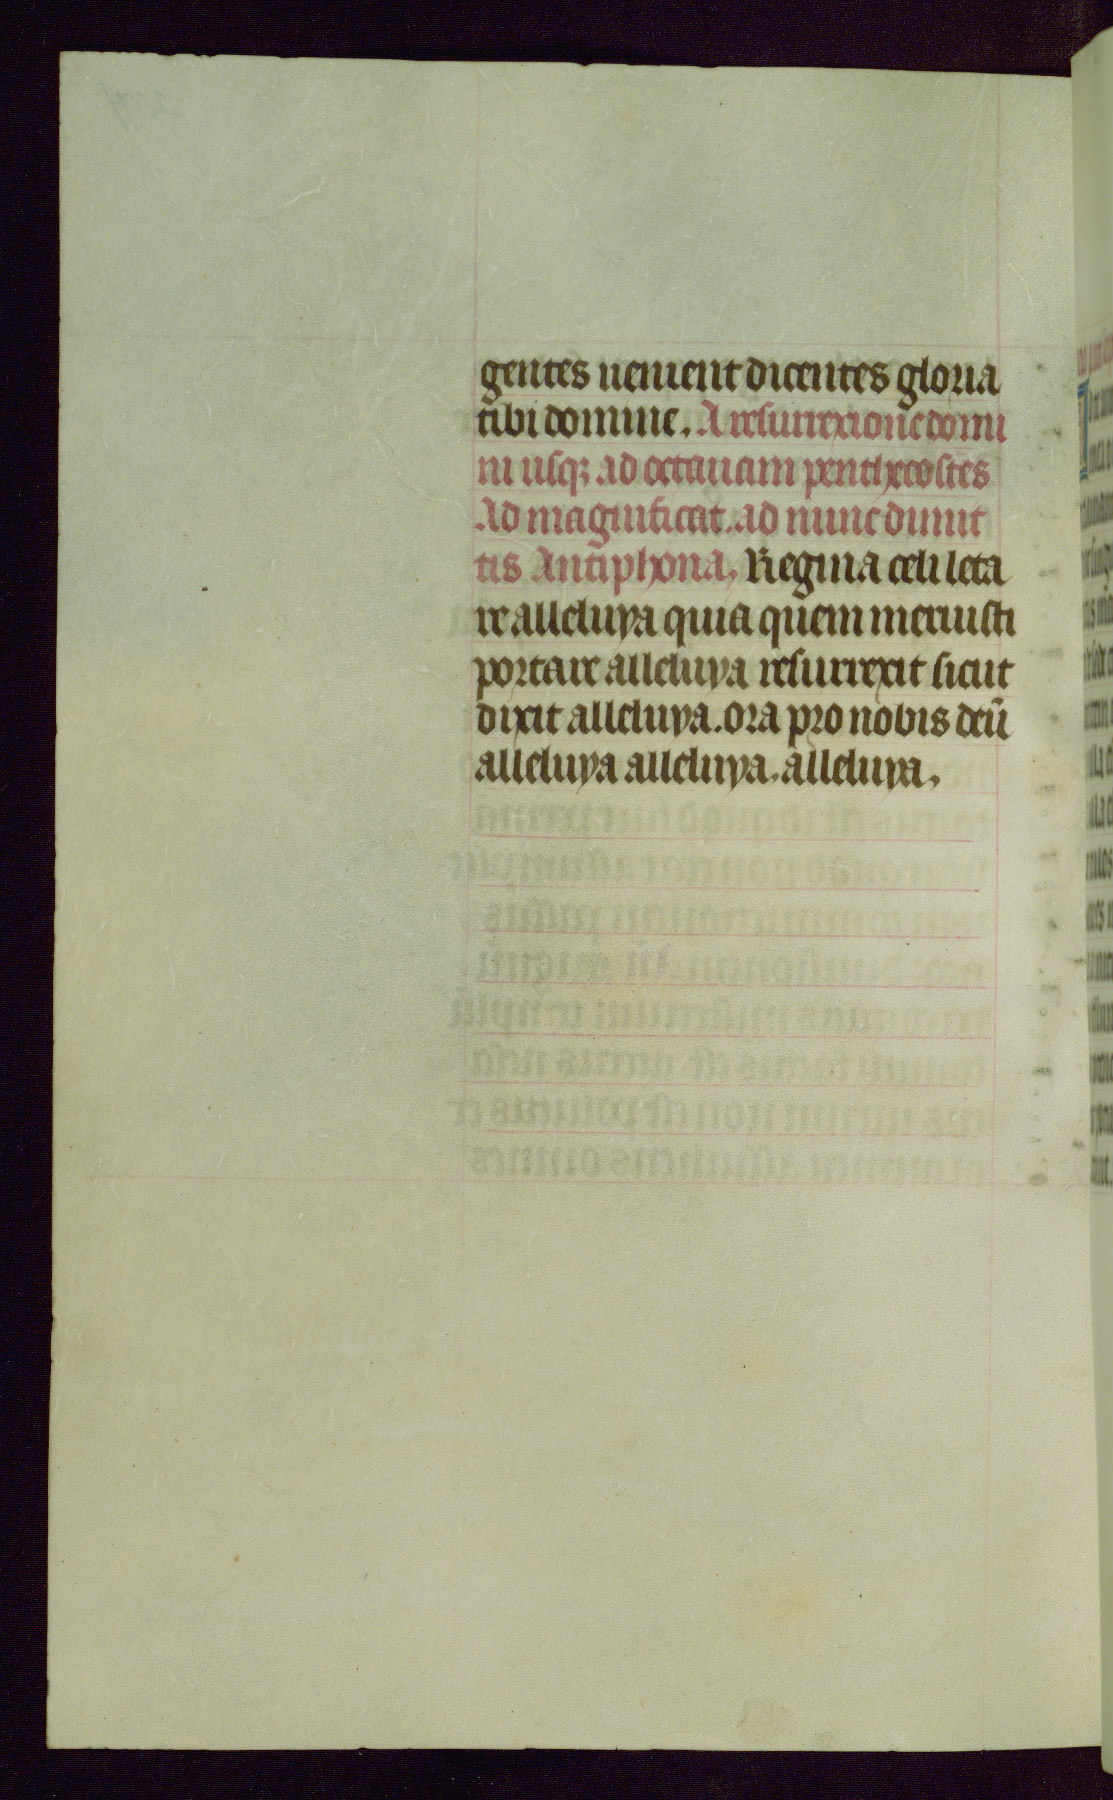 gentes uenient dicentes gloria
tibi domine. A resurrexione domi
ni usqꝫ ad octauam penthecostes
Ad magnificat. ad nunc dimit
tis Antiphona. Regina celi leta
re alleluya quia quem meruisti
portare alleluya resurrexit sicut
dixit alleluya. ora pro nobis deū
alleluya alleluya. alleluya.